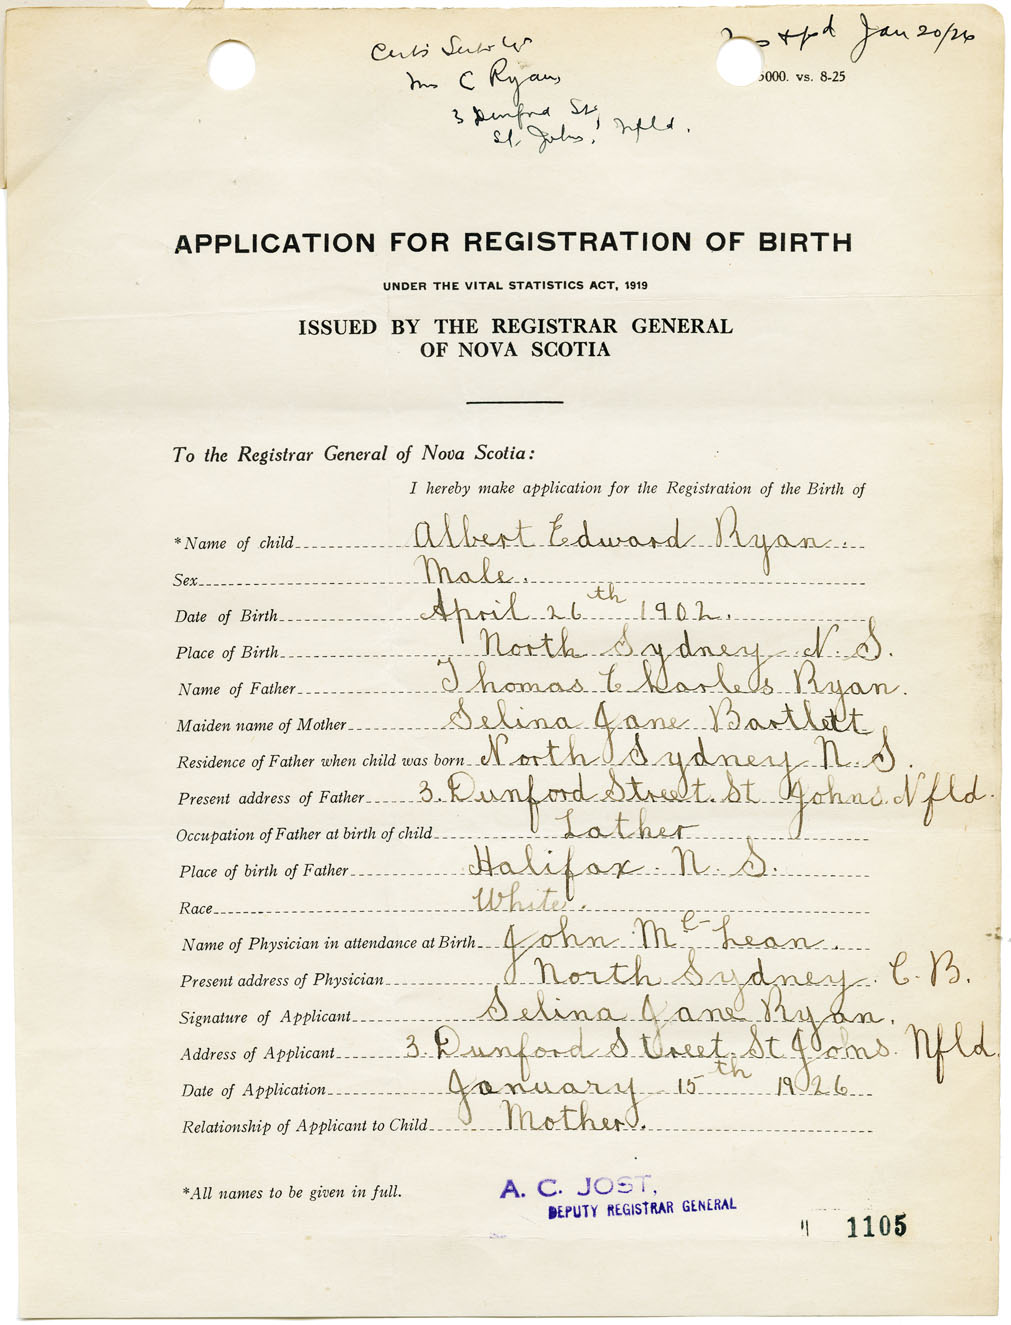 Jan 20/26
5000. vs. 8-25
Mrs C Ryan,
3 Dunford St,
St. Johns, Nfld.
APPLICATION FOR REGISTRATION OF BIRTH
UNDER THE VITAL STATISTICS ACT, 1919
ISSUED BY THE REGISTRAR GENERAL
OF NOVA SCOTIA
To the Registrar General of Nova Scotia:
I hereby make application for the Registration of the Birth of
*Name of child Albert Edward Ryan.
Sex Male.
Date of Birth April 26th 1902.
Place of Birth North Sydney N. S.
Name of Father Thomas Charles Ryan.
Maiden name of Mother Selina Jane Bartlett
Residence of Father when child was born North Sydney N. S.
Present address of Father 3. Dunford Street. St Johns. Nfld.
Occupation of Father at birth of child Lather
Place of birth of Father Halifax. N. S.
Race White.
Name of Physician in attendance at Birth John Mc-Lean.
Present address of Physician North Sydney. C. B.
Signature of Applicant Selina Jane Ryan.
Address of Applicant 3. Dunford Street. St Johns. Nfld.
Date of Application January 15th 1926
Relationship of Applicant to Child Mother.
*All names to be given in full.
A. C. JOST,
DEPUTY REGISTRAR GENERAL
1105